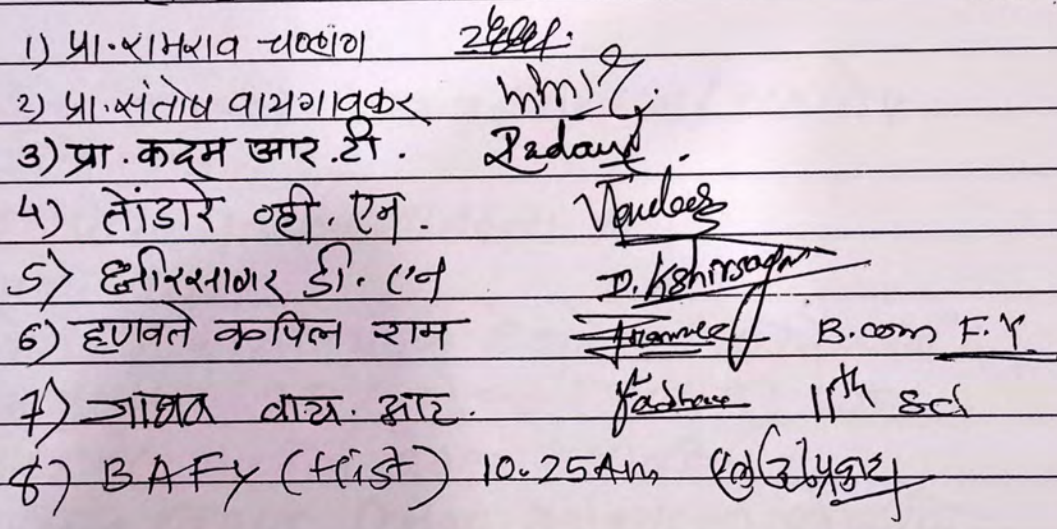 1) प्रा. रामराव चव्हाण
2) प्रा. संतोष वायगावकर
3) प्रा. कदम आर. टी. Kadam
4) तोंडारे व्ही. एन.
5) क्षीरसागर डी. एन D. Kshirsagar
6) हणवते कपिल राम B.com F.Y.
7) जाधव वाय. आर. Jadhav 11th Sci
8) BAFY (Hist) 10.25Am